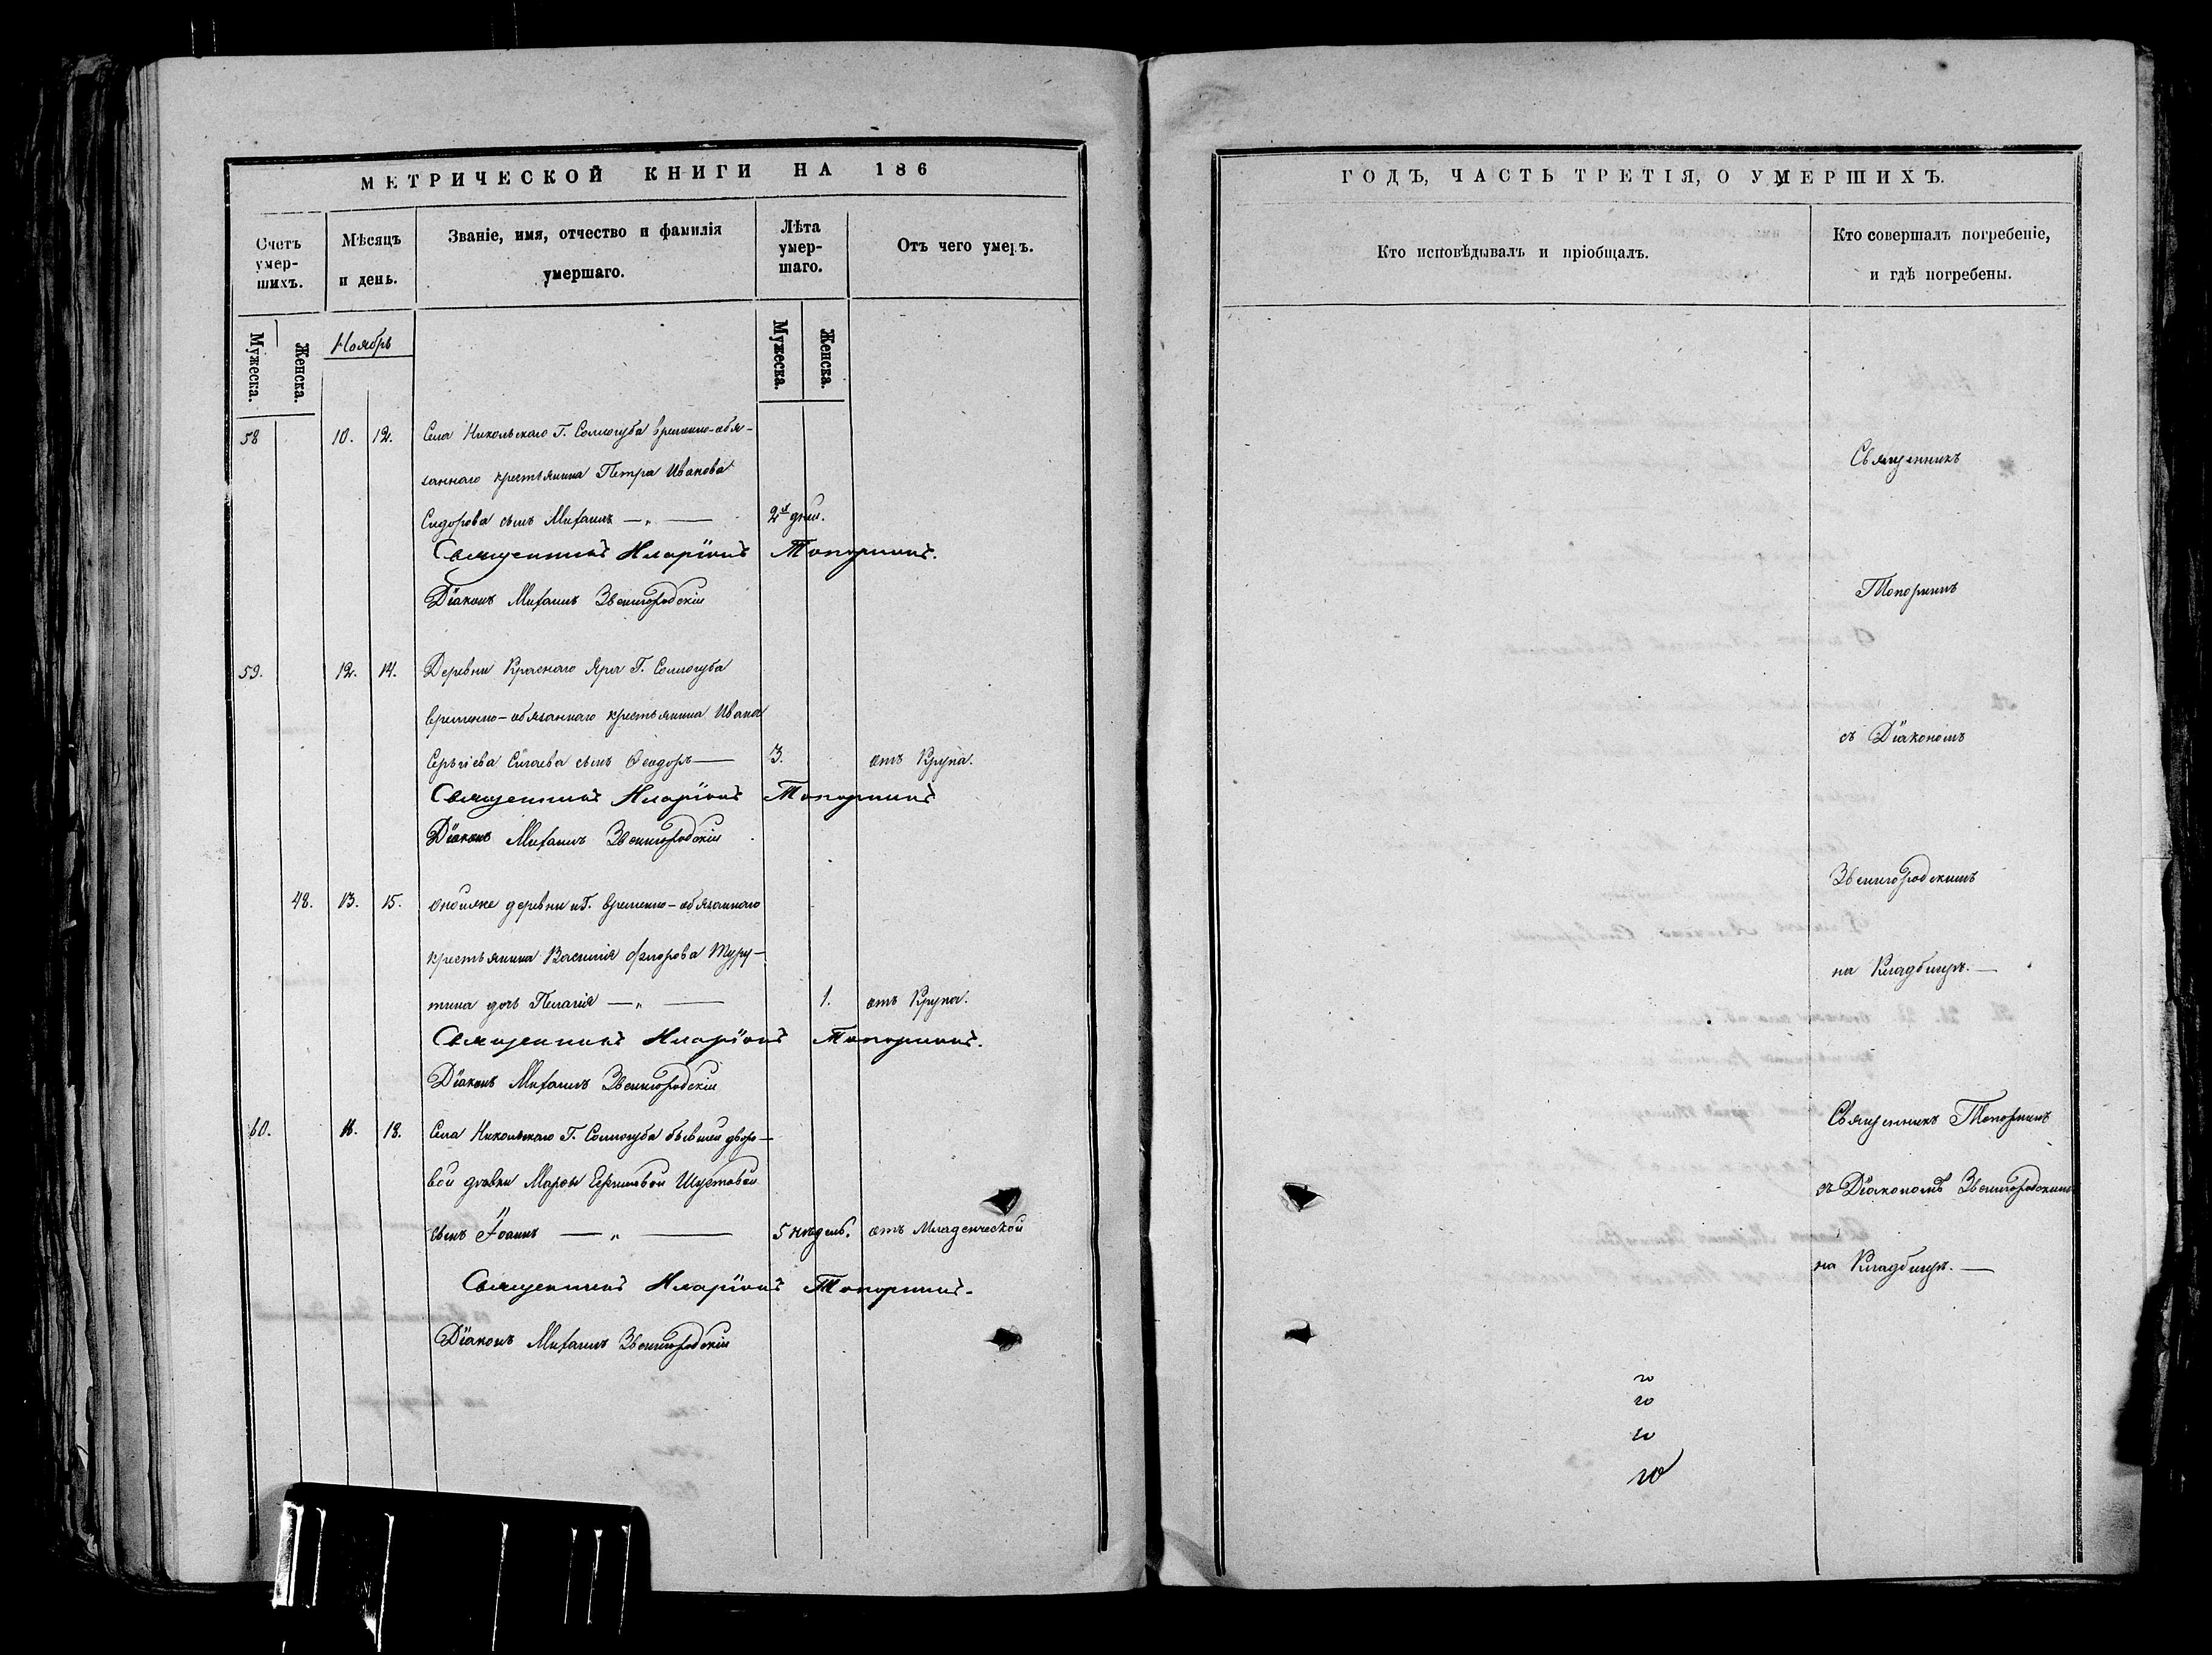 МЕТРИЧЕСКОЙ КНИГИ НА 186
Счетъ умер-шихъ.
Мѣсяцъ и день.
Званіе, имя, отчество и фамилія умершаго.
Лѣта умер-шаго.
Отъ чего умеръ.
Мужеска.
Женска.
Ноябрь
Мужеска.
Женска.
58 10. 12. Села Никольскаго Г. Соллогуба временно-обя-
заннаго крестьянина Петра Иванова
Сидорова сынъ Михаилъ — „ — 2х дней.
Священникъ Иларіонъ Топорнинъ.
Діаконъ Михаилъ Звенигородскій
59. 12. 14. Деревни Краснаго Яра Г. Соллогуба
временно-обязаннаго крестьянина Ивана
Сергѣева сынъ Ѳеодоръ — 3. отъ Крупа.
Священникъ Иларіонъ Топорнинъ
Діаконъ Михаилъ Звенигородскій
48. 13. 15. оной же деревни и Г. временно-обязаннаго
крестьянина Василія Флорова Туру-
тина дочь Пелагія — „ — 1. отъ Крупа.
Священникъ Иларіонъ Топорнинъ.
Діаконъ Михаилъ Звенигородскій
60. 18. Села Никольскаго Г. Соллогуба бывшей дворо-
вой дѣвки Марѳы Шустовой
сынъ Іоаннъ — „ — 5 недѣль. отъ Младенческой
Священникъ Иларіонъ Топорнинъ.
Діаконъ Михаилъ Звенигородскій
ГОДЪ, ЧАСТЬ ТРЕТІЯ, О УМЕРШИХЪ.
Кто исповѣдывалъ и пріобщалъ.
Кто совершалъ погребеніе,
и гдѣ погребены.
Священникъ
Топорнинъ
съ Діакономъ
Звенигородскимъ
на Кладбищѣ. —
Священникъ Топорнинъ
съ Діакономъ Звенигородскимъ
на Кладбищѣ. —